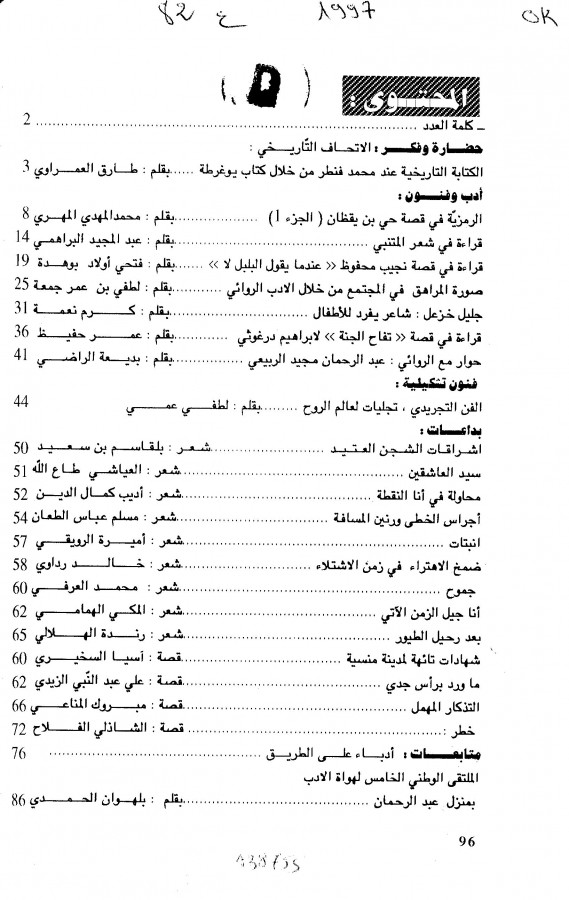 82 ع 1997 OK
المحتوى :
ـ كلمة العدد ........ 2
حضارة وفكـر : الاتحاف التّاريخي :
الكتابة التاريخية عند محمد فنطر من خلال كتاب يوغرطة ......بقلم : طارق العمـراوي 3
أدب وفنـون :
الرمزيّة في قصة حي بن يقظان ( الجزء 1) ........بقلم : محمدالمهدي المهـري 8
قراءة في شعر المتنبي ........بقلم : عبد المجيد البراهمـي 14
قراءة في قصة نجيب محفوظ « عندما يقول البلبل لا » ......بقلم : فتحي أولاد بوهدة 19
صورة المراهق في المجتمع من خلال الادب الروائي ......بقلم : لطفي بن عمر جمعة 25
جليل خزعل : شاعر يغرد للأطفال ........بقلم : كـــرم نعمـــة 31
قراءة في قصة « تفاح الجنة » لابراهيم درغوثي ........بقلم : عمــر حفيــظ 36
حوار مع الروائي : عبد الرحمان مجيد الربيعي ......بقلم : بديعة الراضـي 41
فنون تشكيلية :
الفن التجريدي ، تجليات لعالم الروح .........بقلم : لطفــي عمـــي 44
بداعـات :
اشراقات الشجن العتيد ........شعر : بلقاسم بن سعيـد 50
سيد العاشقين ........شعر : العياشي طاع اللّه 51
محاولة في أنا النقطة ........شعر : أديب كمال الديـن 52
أجراس الخطى ورنين المسافة ........شعر : مسلم عباس الطعان 54
انبتات ........شعر : أميـرة الرويقـي 57
ضمخ الاهتراء في زمن الاشتلاء ........شعر : خالـــد رداوي 58
جموح ........شعر : محمـد العرفـي 60
أنا جيل الزمن الآتي ........شعر : المكي الهمامـي 62
بعد رحيل الطيور ........شعر : رنـدة الهـلالي 65
شهادات تائهة لمدينة منسية ........قصة : آسيـا السخيـري 60
ما ورد برأس جدي ........قصة : علي عبد النّبي الزيدي 62
التذكار المهمل ........قصة : مبـروك المناعـي 66
خطر : ........قصة : الشاذلي الفــلاح 72
متابعـات : أدبـاء علـى الطريـق ........ 76
الملتقى الوطني الخامس لهواة الادب
بمنزل عبد الرحمان ........بقلم : بلهـوان الحمـدي 86
96